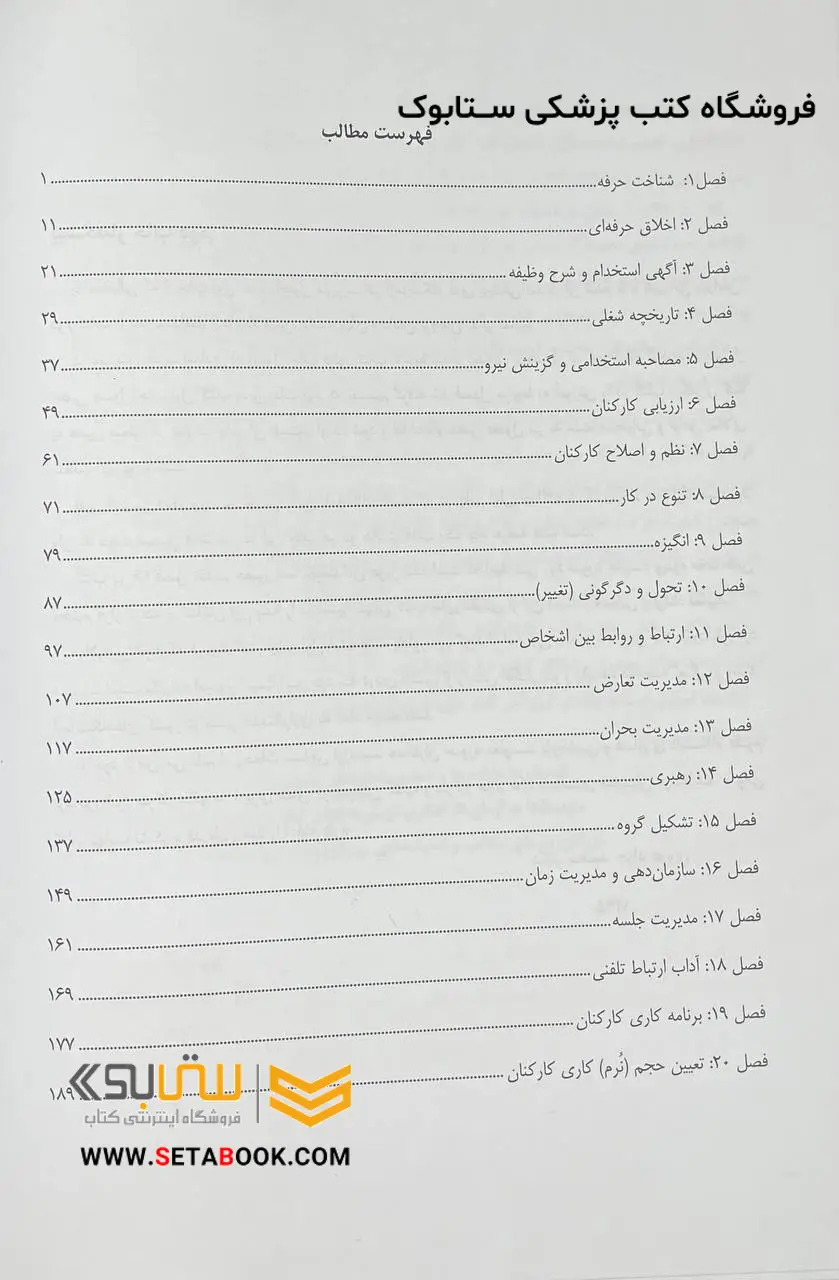 فروشگاه کتب پزشکی ستابوک
فهرست مطالب
فصل۱: شناخت حرفه ۱
فصل ۲: اخلاق حرفه‌ای ۱۱
فصل ۳: آگهی استخدام و شرح وظیفه ۲۱
فصل ۴: تاریخچه شغلی ۲۹
فصل ۵: مصاحبه استخدامی و گزینش نیرو ۳۷
فصل ۶: ارزیابی کارکنان ۴۹
فصل ۷: نظم و اصلاح کارکنان ۶۱
فصل ۸: تنوع در کار ۷۱
فصل ۹: انگیزه ۷۹
فصل ۱۰: تحول و دگرگونی (تغییر) ۸۷
فصل ۱۱: ارتباط و روابط بین اشخاص ۹۷
فصل ۱۲: مدیریت تعارض ۱۰۷
فصل ۱۳: مدیریت بحران ۱۱۷
فصل ۱۴: رهبری ۱۲۵
فصل ۱۵: تشکیل گروه ۱۳۷
فصل ۱۶: سازمان‌دهی و مدیریت زمان ۱۴۹
فصل ۱۷: مدیریت جلسه ۱۶۱
فصل ۱۸: آداب ارتباط تلفنی ۱۶۹
فصل ۱۹: برنامه کاری کارکنان ۱۷۷
فصل ۲۰: تعیین حجم (نُرم) کاری کارکنان ۱۸۹
ستابوک
فروشگاه اینترنتی کتاب
WWW.SETABOOK.COM